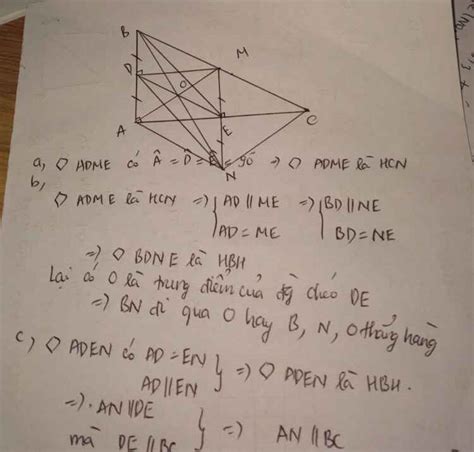 B
M
D
O
A
E
C
N
a, ◇ ADME có Â = D̂ = Ê = 90° => ◇ ADME là HCN
b,
◇ ADME là HCN => { AD // ME => { BD // NE
AD = ME BD = NE
=> ◇ BDNE là HBH
Lại có O là trung điểm của đg chéo DE
=> BN đi qua O hay B, N, O thẳng hàng
c, ◇ ADEN có AD = EN
AD // EN } => ◇ ADEN là HBH.
=> . AN // DE
mà DE // BC } => AN // BC